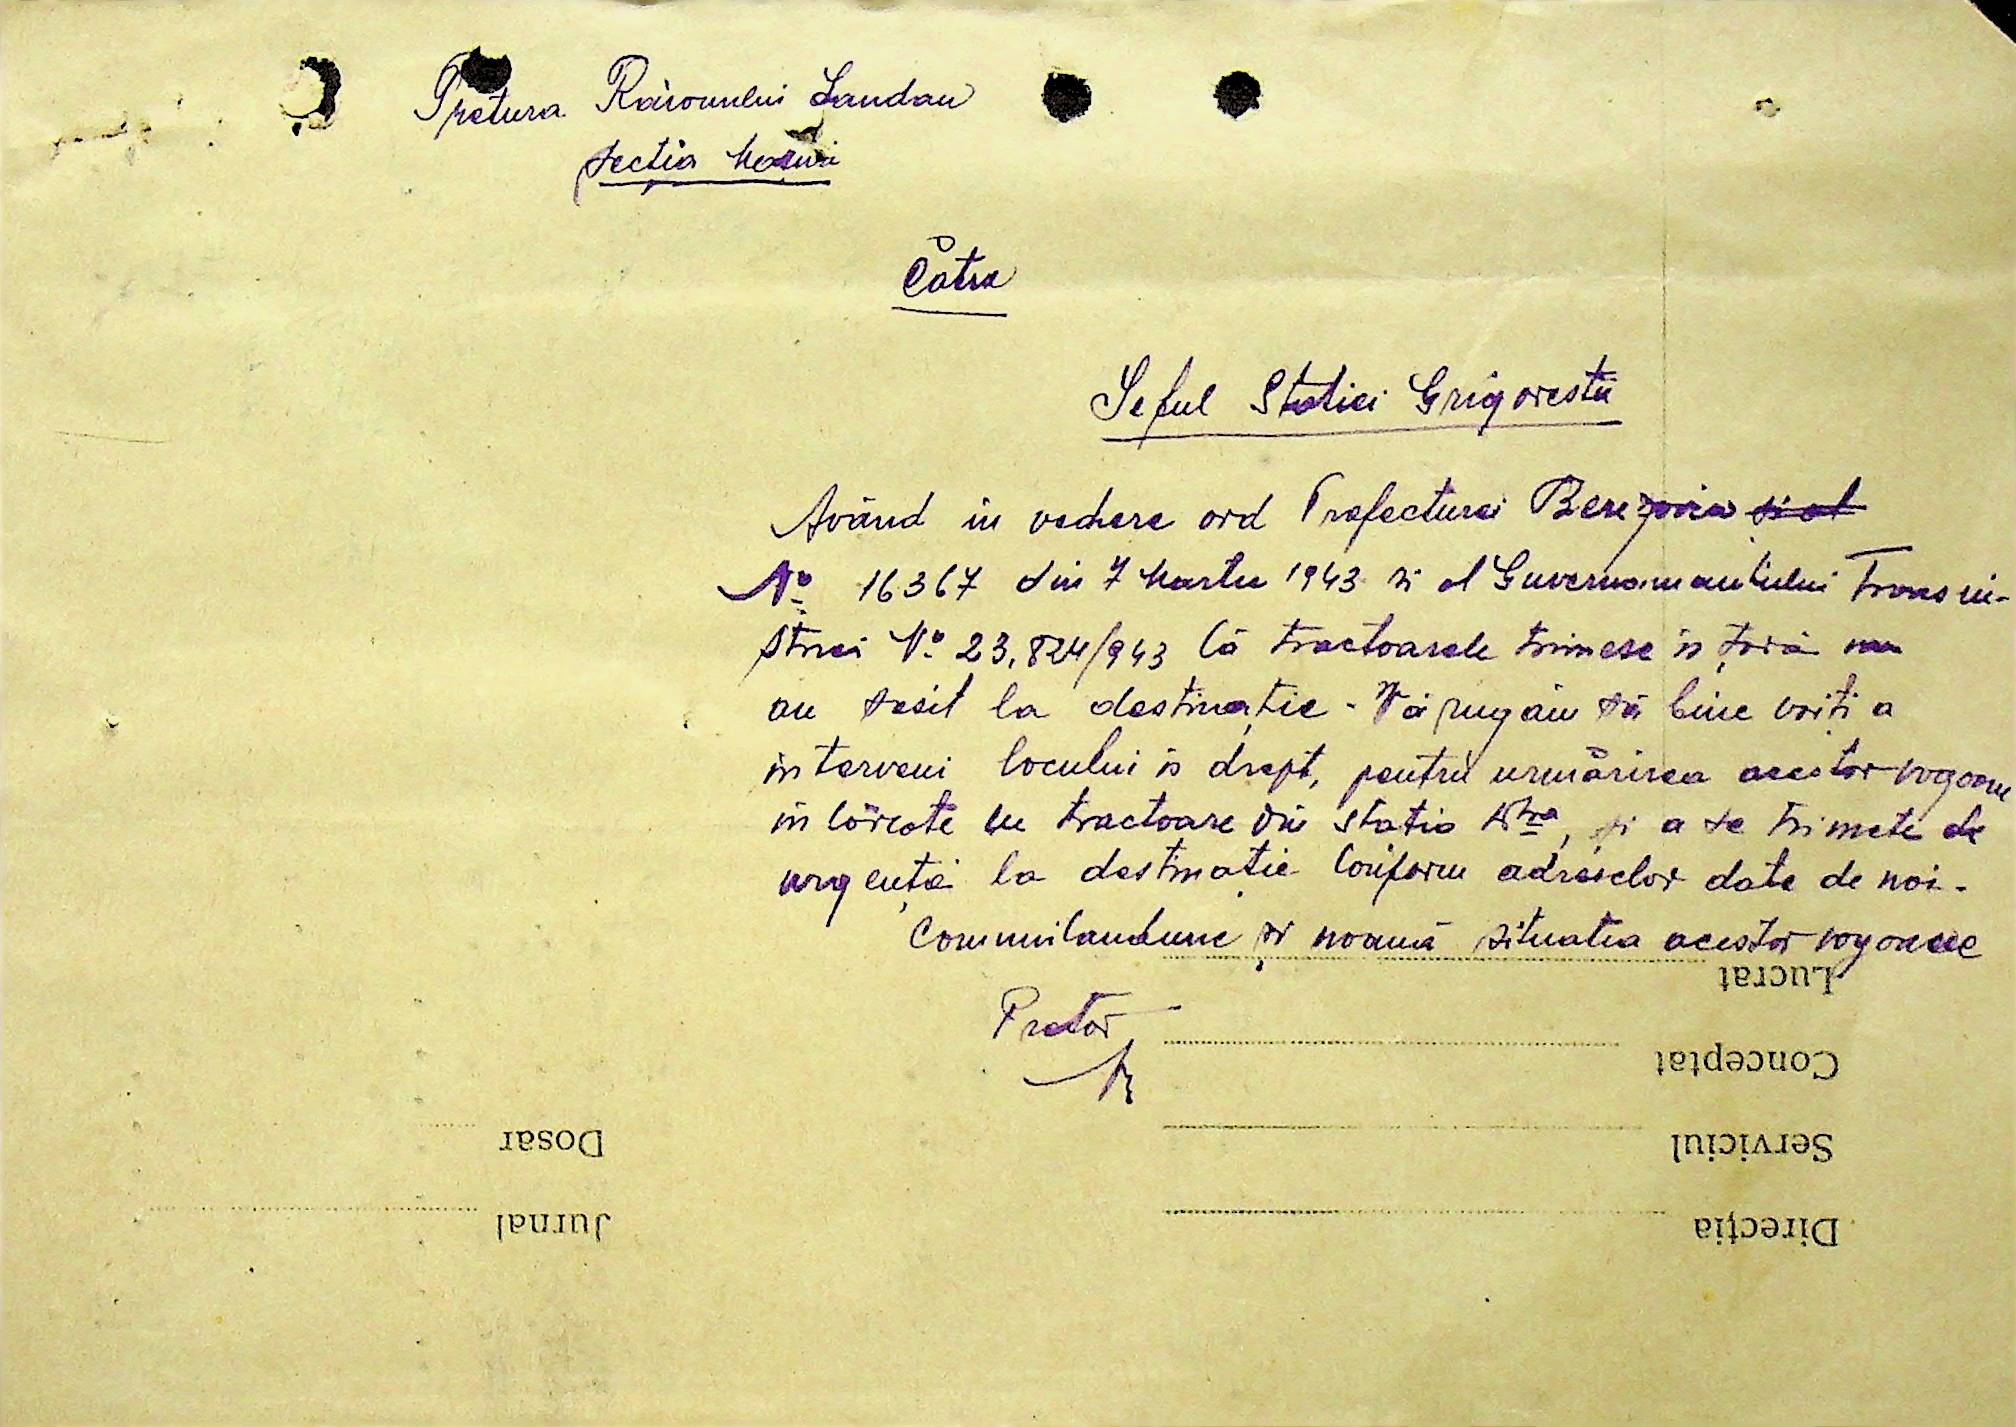 Pretura Raionului Landau
Sectia Masini
Cătra
Seful Statiei Grigorestii
Având in vedere ord Prefecturei Berezovca si al
No 16367 din 7 Martie 1943 si al Guvernamantului Transni-
striei No 23.824/943 Că tractoarele trimese in țară nu
au sosit la destinație - Vă rugăm să bine voiti a
interveni locului in drept, pentru urmărirea acestor vagoane
incărcate cu tractoare din statia Dvra, și a se trimete de
urgență la destinație Conform adreselor date de noi -
Comunicandune si nouă situatia acestor vagoane
Pretor
Lucrat
Conceptat
Serviciul
Direcția
Dosar
Jurnal